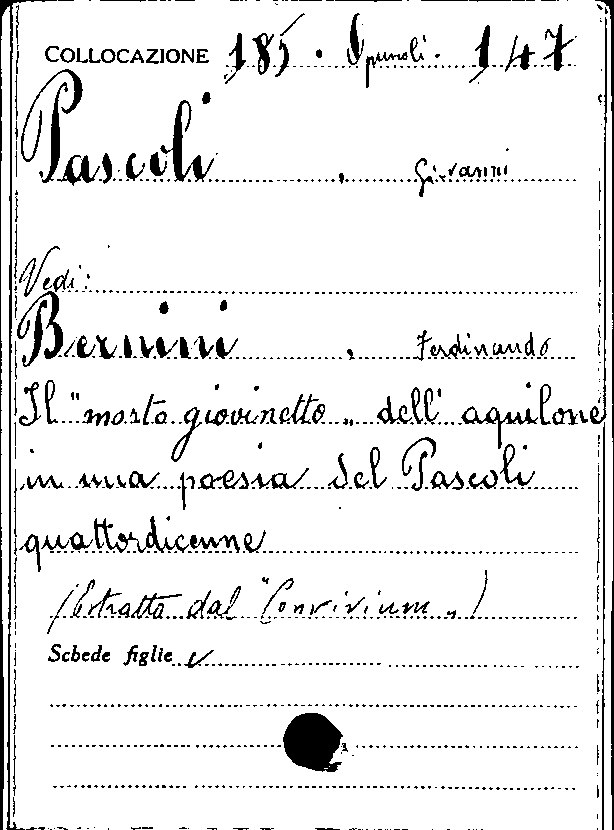 COLLOCAZIONE 185 . Opuscoli . 147
Pascoli , Giovanni
Vedi:
Bernini , Ferdinando
Il "morto giovinetto„ dell' aquilone
in una poesia del Pascoli
quattordicenne
(Estratto dal "Convivium„)
Schede figlie